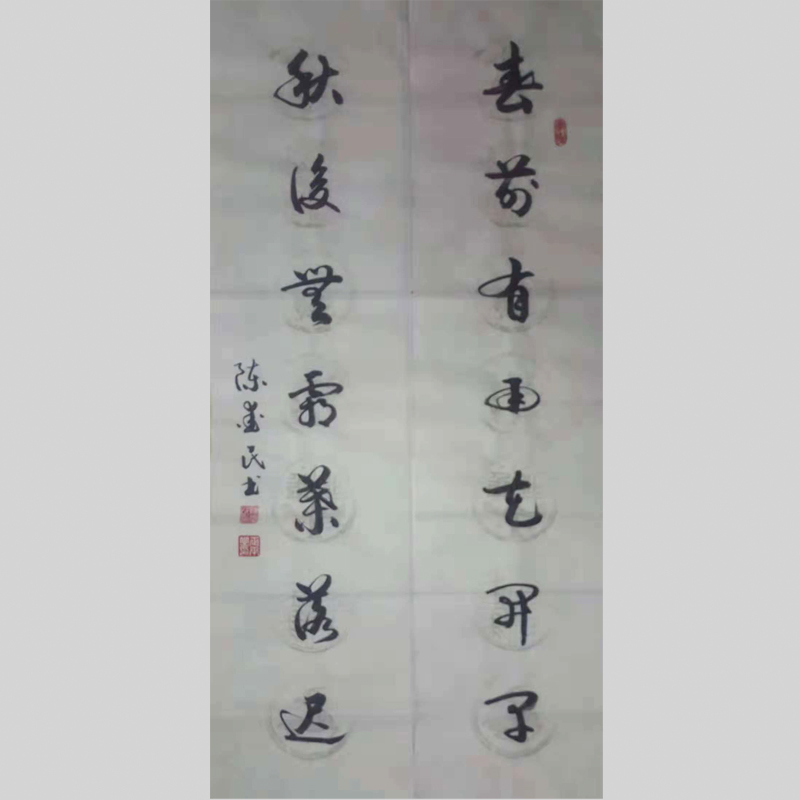 春前有雨花開早
秋後無霜葉落遲
陈爱民书